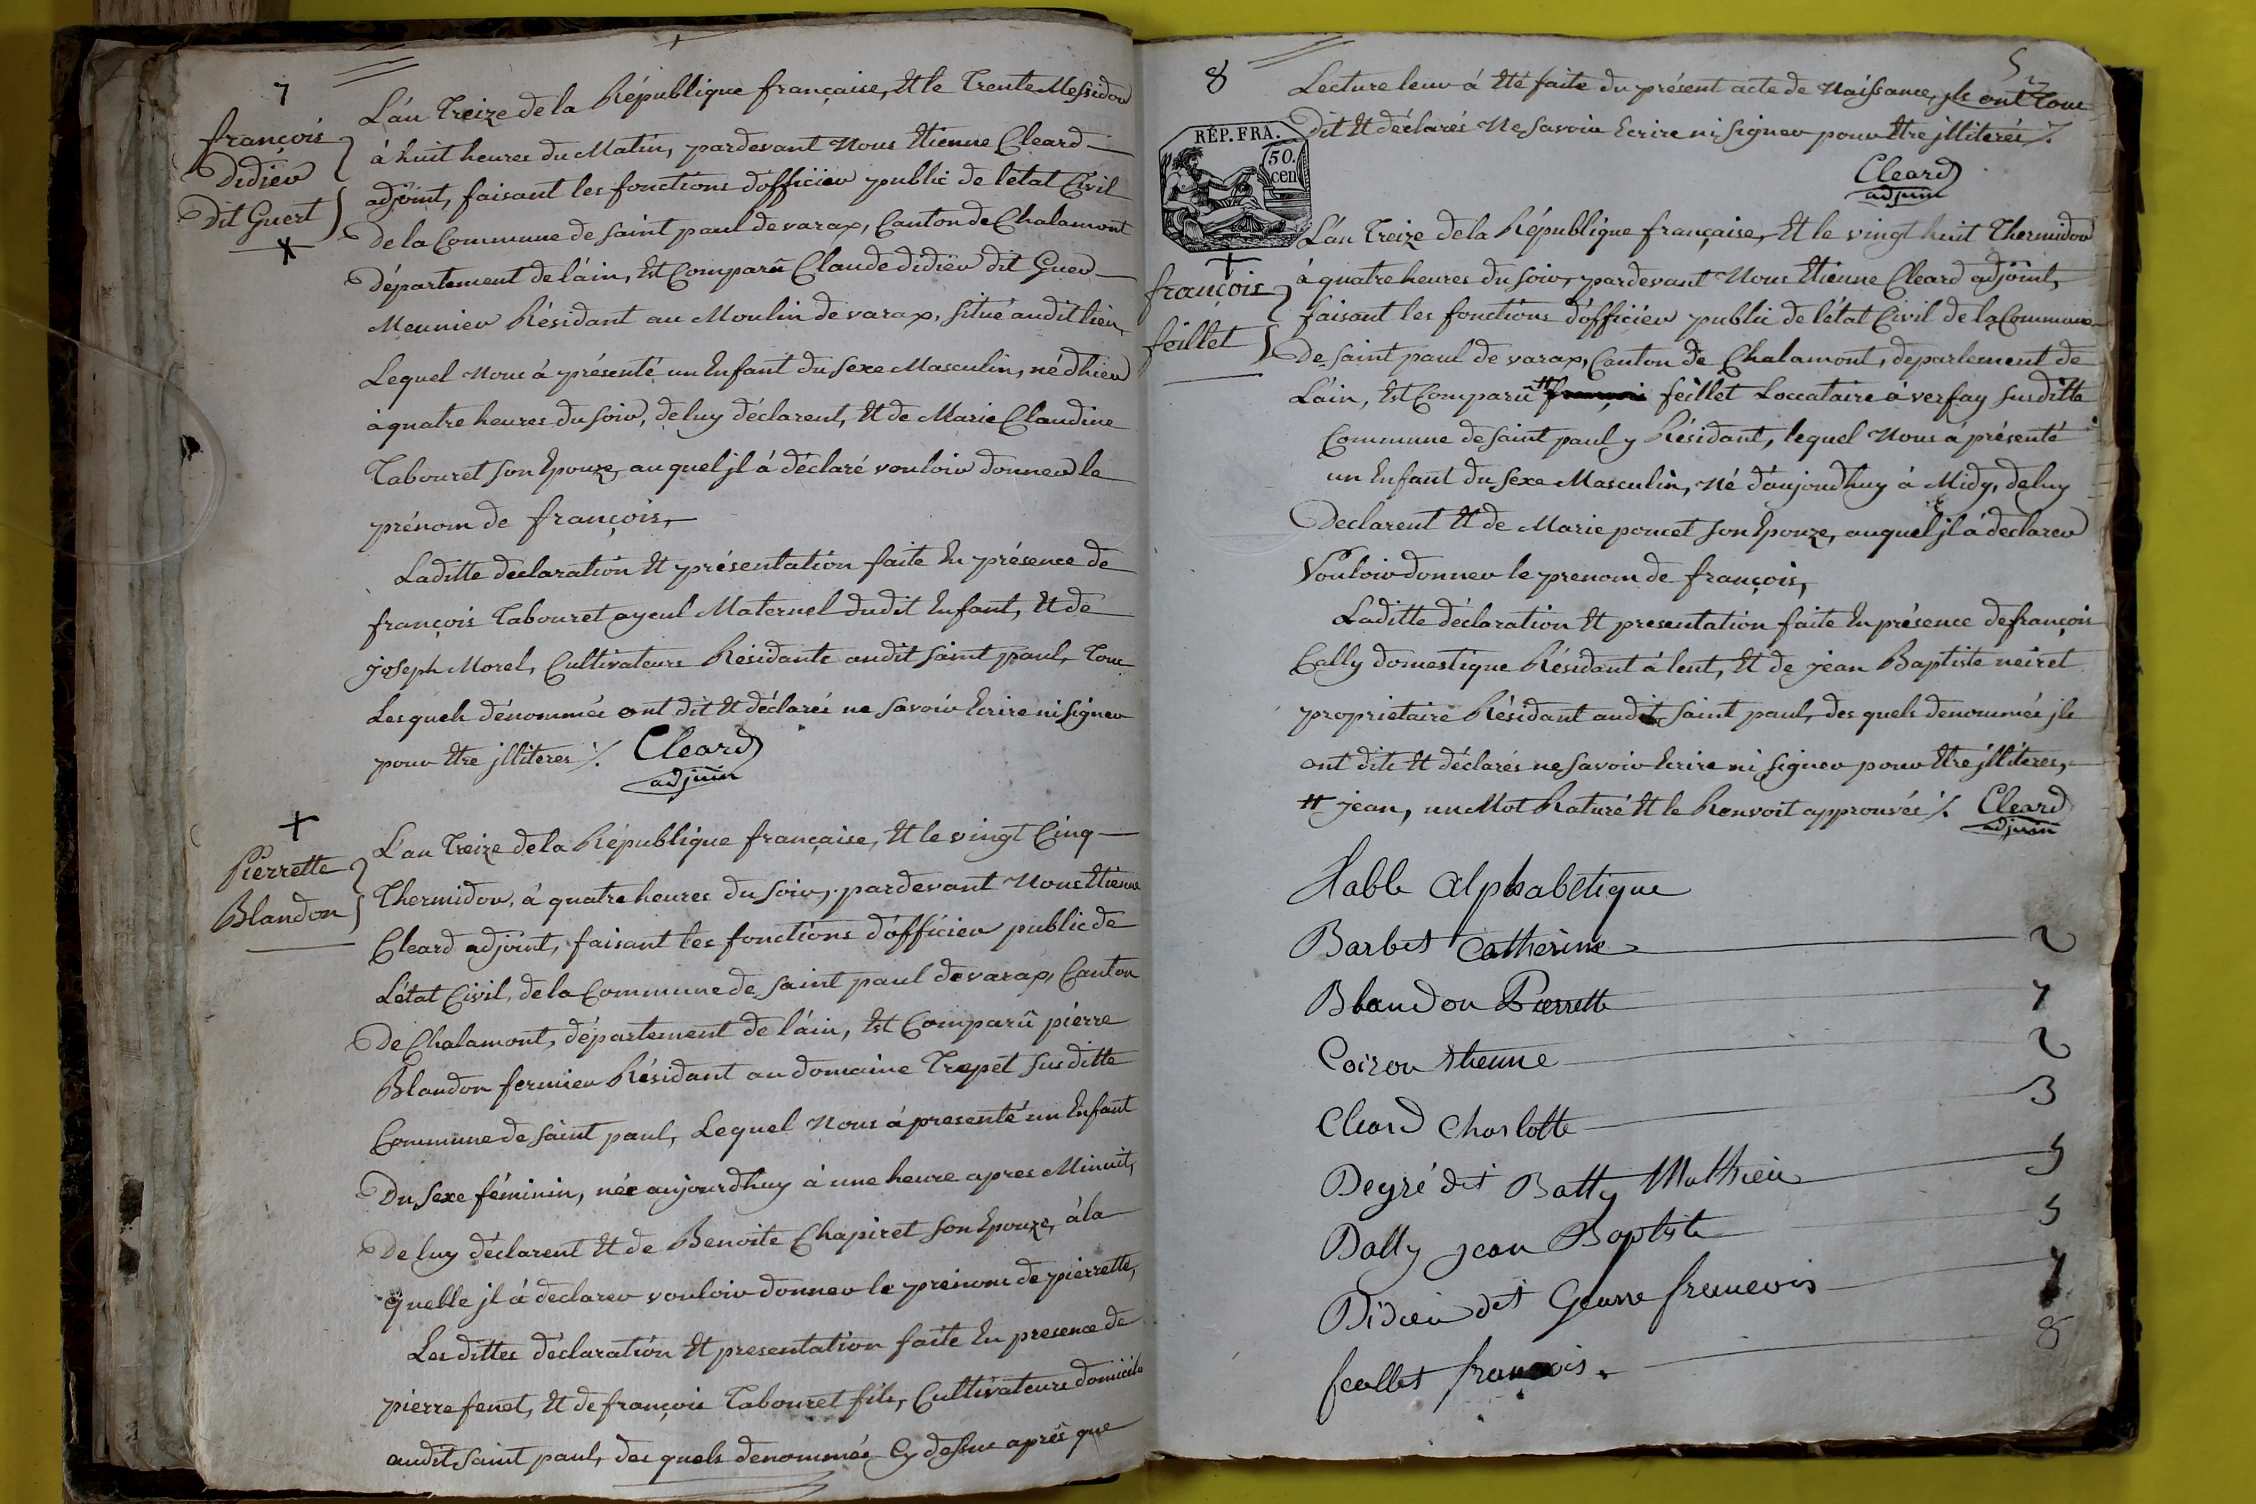 7
françois
Didiër
Dit Guert
L'àn Treize de la République française, Et le Trente Messidor
à huit heures du Matin, pardevant Nous Etienne Cleard
adjoint, faisant les fonctions d'officiër public de l'état Civil
De la Commune de saint paul de varax, Canton de Chalamont
Département de l'áin, Est Comparû Claude didiër dit Guer
Meunier Résidant au Moulin de varax, situé audit lieu,
Lequel Nous à présenté un Enfant du sexe Masculin, né d'hier
à quatre heures du soir, de luy déclarent, Et de Marie Claudine
Tabouret son Epouze, auquel jl à déclaré vouloir donner le
prénom de françois,
Laditte declaration Et présentation faite En présence de
françois Tabouret ayeul Maternel dudit Enfant, Et de
joseph Morel, Cultivateurs Résidants audit saint paul, Tous
Lesquels dénommés ont dit Et déclarés ne savoir Ecrire ni signer
pour Etre jlliteres ./. Cleard
adjuin
Pierrette
Blandon
L'an Treize de la République française, Et le vingt Cinq
Thermidor, à quatre heures du soir, pardevant Nous Etienne
Cleard adjoint, faisant les fonctions d'officier public de
L'état Civil, de la Commune de saint paul de varax, Canton
De Chalamont, département de l'áin, Est Comparû piérre
Blandon fermier Résidant au domaine Trepet susditte
Commune de saint paul, Lequel Nous à presenté un Enfant
Du sexe féminin, née aujourdhuy à une heure apres Minuit,
De luy déclarent Et de Benoite Chapiret son Epouze, à la
quelle jl à declarer vouloir donner le prenom de pierrette,
Les dittes déclaration Et presentation faite En presence de
pierre fenet, Et de françois Tabouret fils, Cultivateurs domicilie
audit saint paul, des quels denommés Cy dessus aprés que
8
5
Lecture leur à Eté faite du présent acte de Naissance, jls ont Tous
dit Et déclarés Ne savoir Ecrire ni signer pour Etre jlliterés ./.
Cleard
adjuin
RÉP. FRA.
50.
cen
françois
feillet
L'an Treize de la République française, Et le vingt huit Thermidor
à quatre heures du soir, pardevant Nous Etienne Cleard adjoint,
faisant les fonctions d'officiér public de l'état Civil de la Commune
De saint paul de varax, Canton de Chalamont, departement de
L'ain, Est Comparû # françois feillet Loccataire à verfay susditte
Commune de saint paul y Résidant, lequel Nous à présenté
un Enfant du sexe Masculin, Né d'aujourdhuy à Midy, de luy
Declarent Et de Marie poncet son Epouze, auquel jl à declarer
Vouloir donner le prenom de françois,
Laditte déclaration Et presentation faite En présence de françois
Cally domestique Résidant à lent, Et de jean Baptiste neiret
propriétaire Résidant audit saint paul, des quels denommés jls
ont dits Et déclarés ne savoir Ecrire ni signer pour Etre jlliteres,
# jean, un Mot Raturé Et le Renvoit approuvés ./. Cleard
adjuin
Table Alphabétique
Barbet Catherine 2
Blandon Pierrette 7
Coiron Etienne 2
Cleard Charlotte 3
Degré dit Batty Mathieu 5
Dally jean Baptiste 5
Didieu dit Geurre francois 7
feullet francois. 8